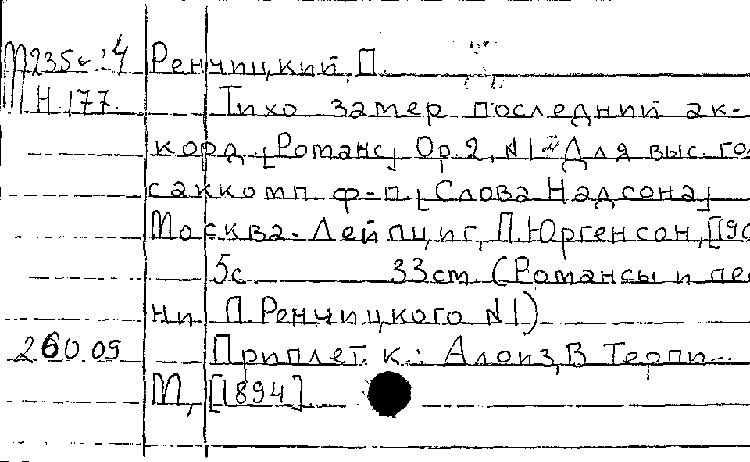 М235к:4 Ренчицкий, П.
М Н.177. Тихо замер последний ак-
корд [Романс] Ор.2, №1. Для выс. гол
с аккомп ф-п. [Слова Надсона]
Москва-Лейпциг, П.Юргенсон, [190
5с 33см (Романсы и пес
ни П. Ренчицкого №1)
260.09 Приплет. к.: Алоиз, В Терпи...
М, [1894]